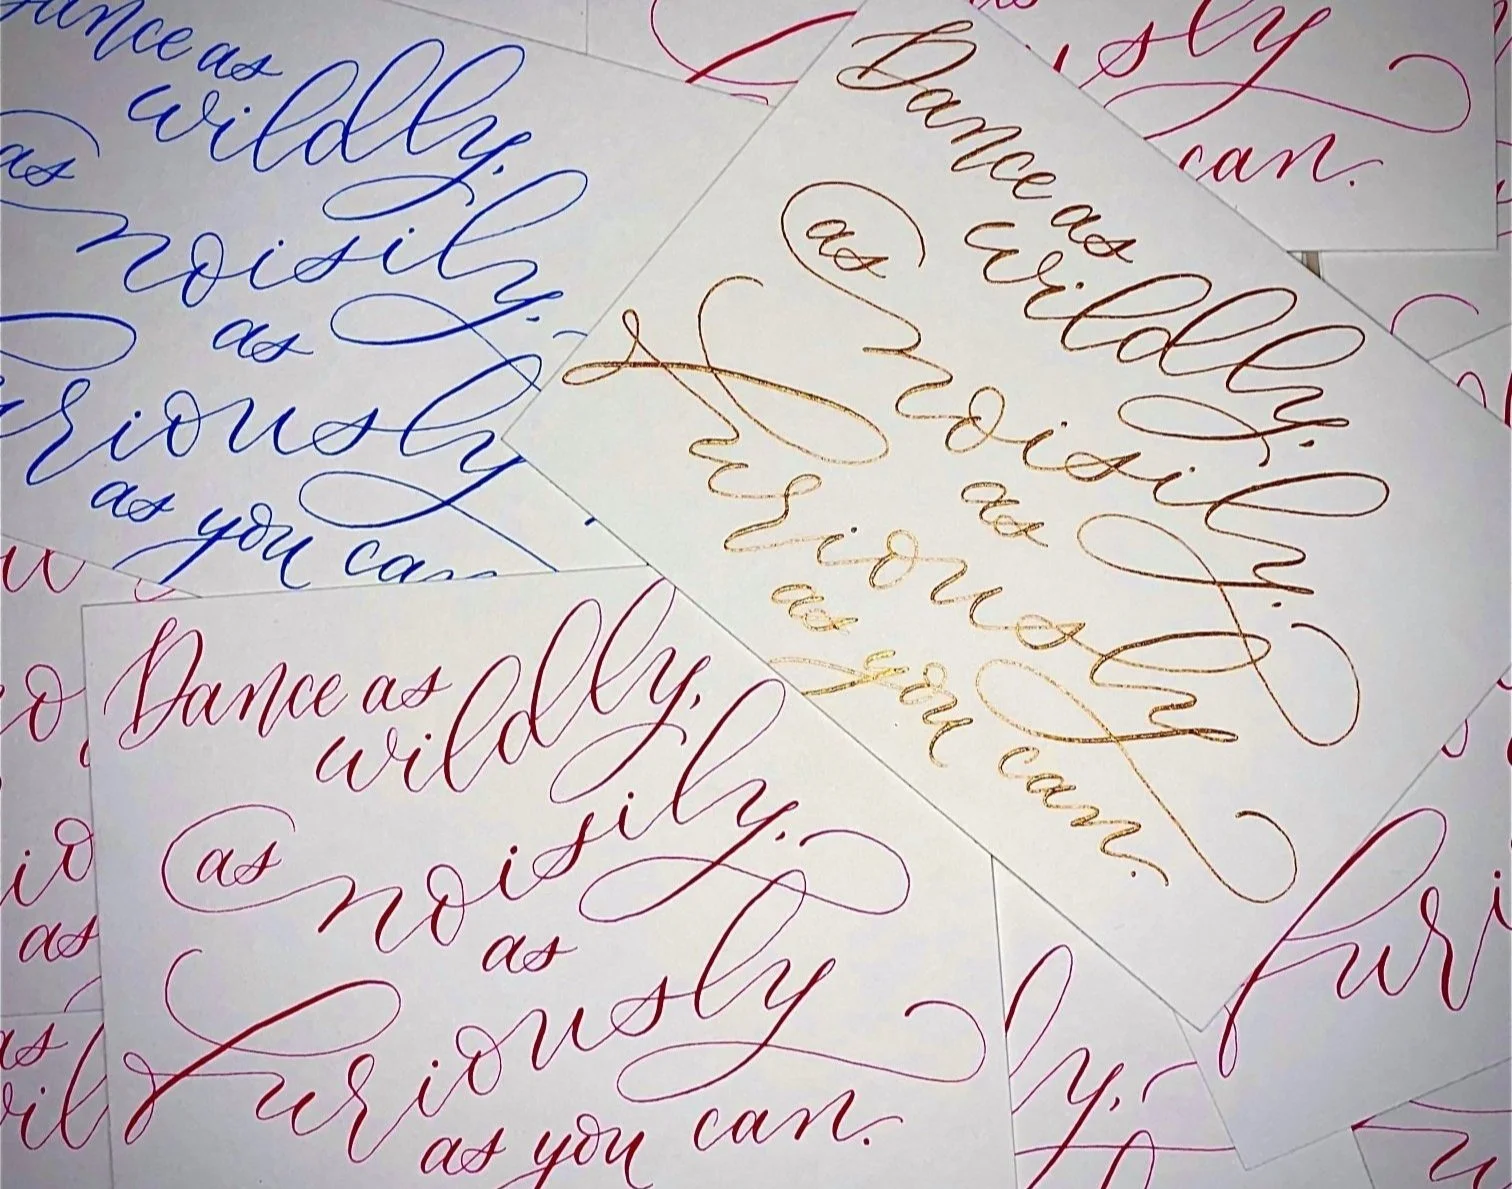 ance as
wildly,
as
noisily,
as
uriously
as you can
Dance as
wildly,
as
noisily,
as
furiously
as you can.
sly
can.
Dance as
wildly,
as
noisily,
as
furiously
as you can.
as
as
ly,
furi